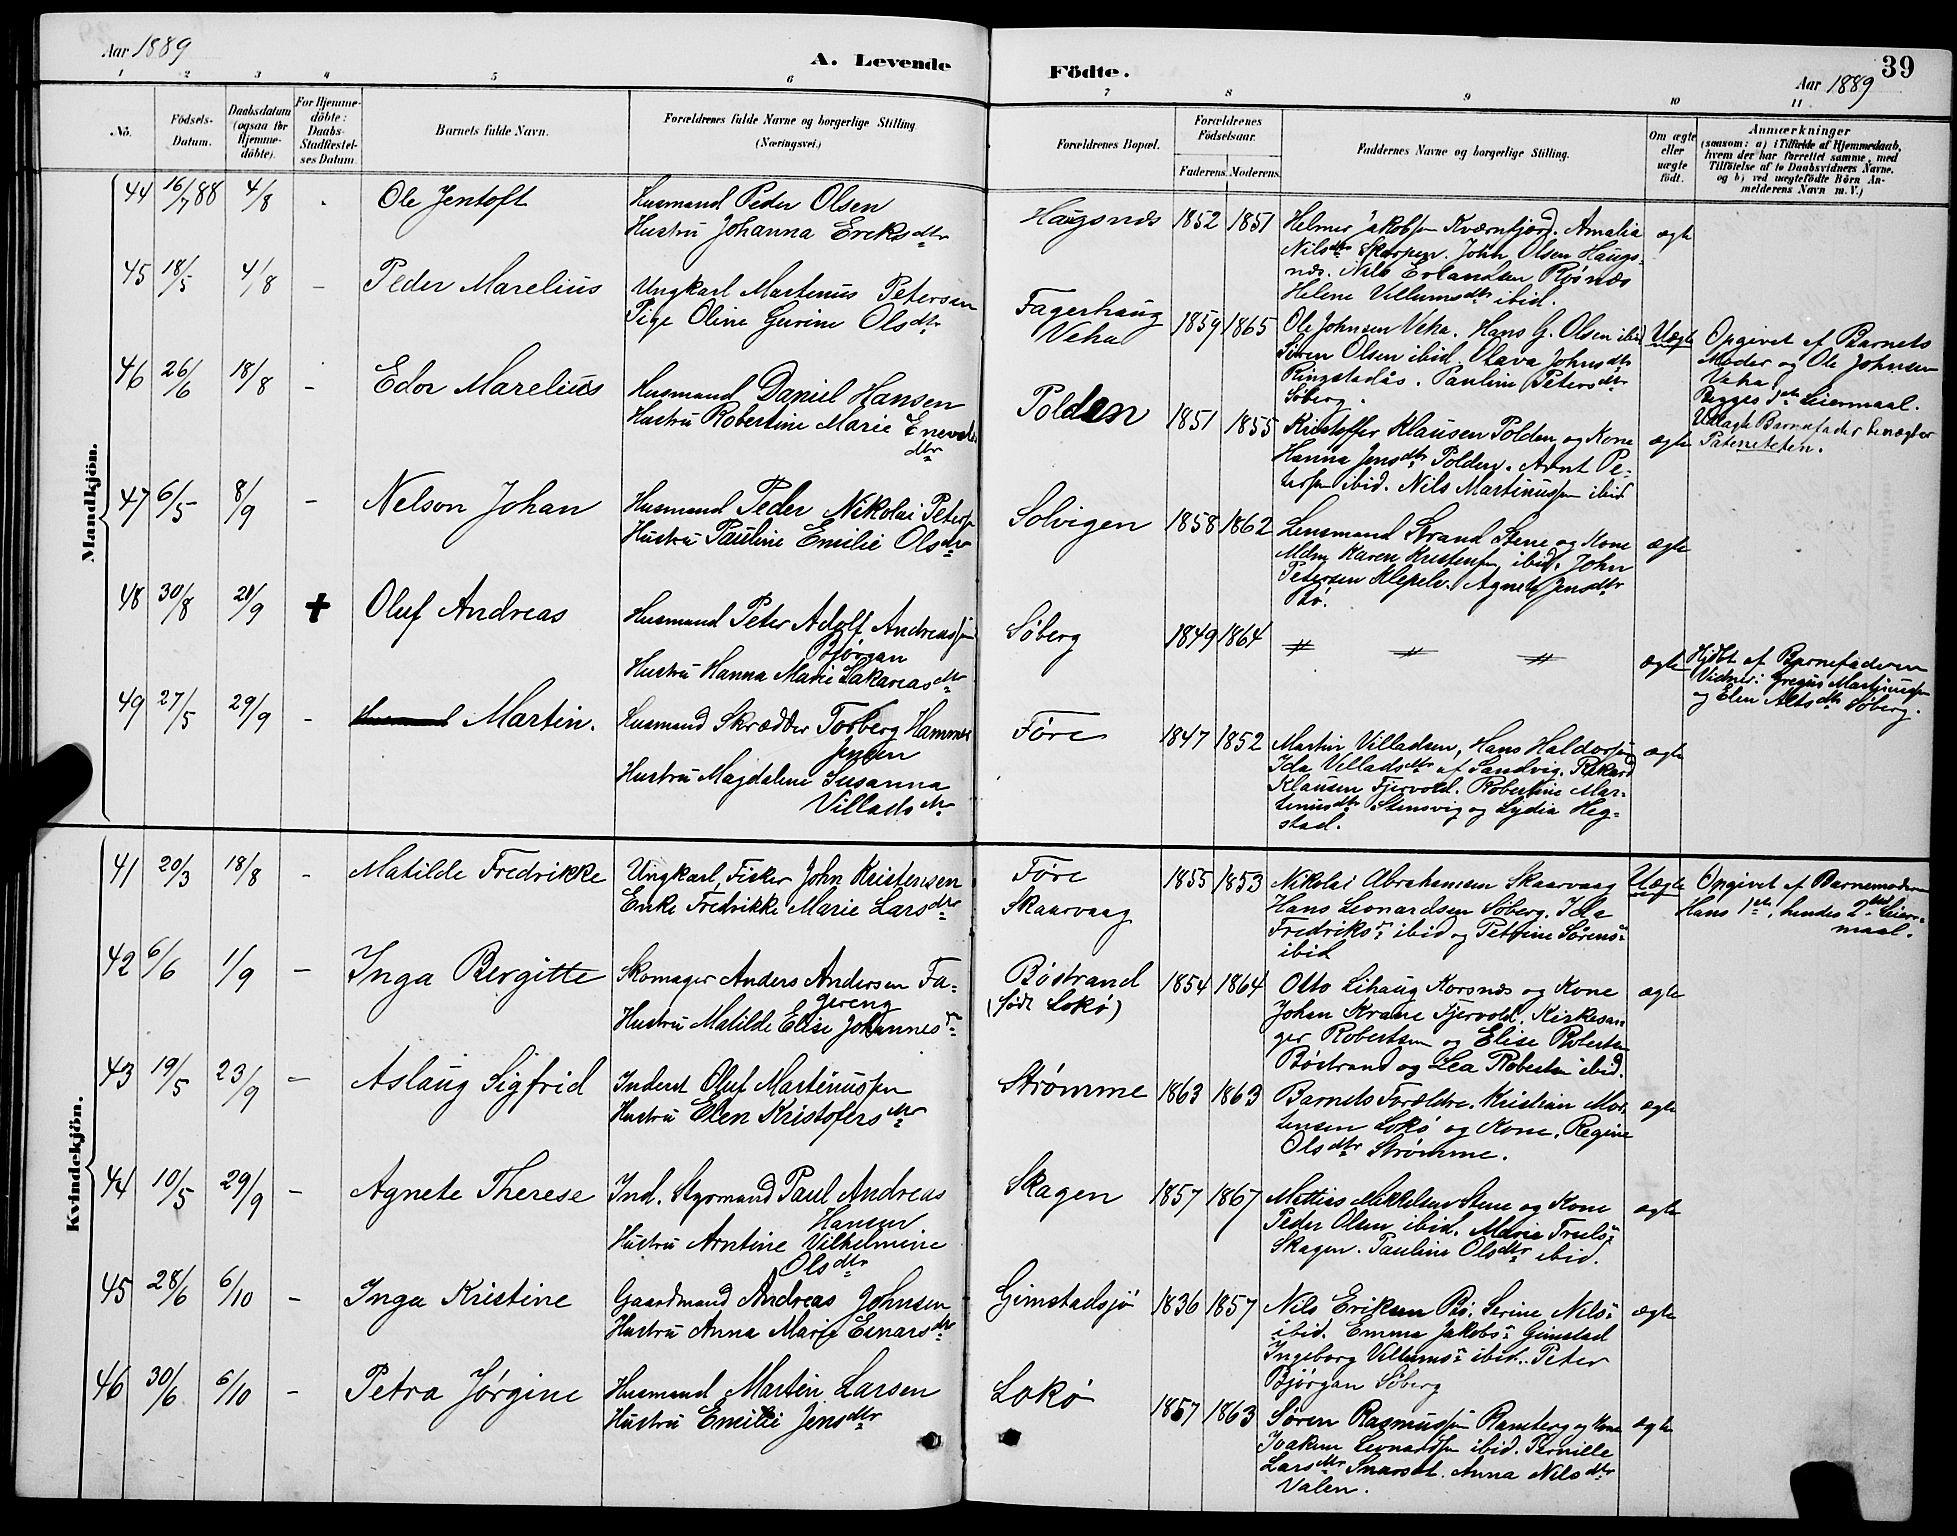 Aar 1889
A. Levende
Födte.
Aar 1889
39
1 2 3 4 5 6 7 8 9 10 11
No.
Födsels-Datum.
Daabsdatum (ogsaa for Hjemme-döbte).
For Hjemme-döbte: Daabs-Stadfæstel-ses Datum.
Barnets fulde Navn.
Forældrenes fulde Navne og borgerlige Stilling (Næringsvei.)
Forældrenes Bopæl.
Forældrenes Födselsaar.
Faderens Moderens
Faddernes Navne og borgerlige Stilling.
Om ægte eller uægte födt.
Anmærkninger
(saasom: a) i Tilfælde af Hjemmedaab,
hvem der har forrettet samme, med
Tilföielse af to Daabsvidners Navne.
og b) ved uægtefödte Börn An-
melderens Navn m. V.)
Mandkjön.
44 16/7 88 4/8 Ole Jentoft
Husmand Peder Olsen
Hustru Johanna Ereksdtr
Haugsnæs 1852 1851
Helmer Jakobsen Kværnfjord. Amalia
Nilsdtr Skarpen. John Olsen Haugs-
næs. Nils Erlandsen Rösnæs
Helene Villumsdtr ibid.
ægte
45 18/5 4/8 - Peder Marelius
Ungkarl Martinus Petersen
Pige Oline Gurine Olsdtr
Fagerhaug
Veha
1859 1865
Ole Johnsen Veha. Hans G. Olsen ibid
Sören Olsen ibid. Olava Johnsdtr
Ringstadås. Pauline Petersdtr
Söberg.
Uægte
Opgivet af Barnets
Moder og Ole Johnsen
Veha
Begges 1ste Leiermaal.
Udlagte Barnefader benægter
Paterniteten.
46 26/6 18/8 - Edor Marelius
Husmand Daniel Hansen
Hustru Robertine Marie Enevolds
dtr
Polden 1851 1855
Kristoffer Klausen Polden og Kone
Hanna Jensdtr Polden. Arnt Pe-
tersen ibid. Nils Martinussen ibid
ægte
47 6/5 8/9 - Nelson Johan
Husmand Peder Nikolai Petersen
Hustru Pauline Emilie Olsdtr
Solvigen 1858 1862
Lensmand Strand Stene og Kone
Karen Kristensen ibid. John
Petersen Klepelv. Agnete Jensdtr
Bö.
ægte
48 30/8 21/9 + Oluf Andreas
Husmand Peter Adolf Andreassen
Bjørgan
Hustru Hanna Marie Sakariasdtr
Söberg 1849 1864
〃 〃 〃
ægte
Hjdbt af Barnefaderen
Vidner: Gregus Martinussen
og Elen Altsdtr Söberg.
49 27/5 29/9 - Martin.
Husmand Skrædder Torberg Hammer
Jensen
Hustru Magdalene Susanna
Villadsdtr
Före 1847 1852
Martin Villadsen, Hans Haldorsen
Ida Villadsdtr af Sandvig. Rikard
Klausen Fjervold. Robertine Mar-
tinusdtr Steinsvig og Lydia Heg-
stad.
ægte
Kvindekjön.
41 20/3 18/8 - Matilde Fredrikke
Ungkarl, Fisker John Kristensen
Enke Fredrikke Marie Larsdtr
Före
Skaarvaag
1855 1853
Nikolai Abrahamsen Skaarvaag
Hans Leonardsen Söberg. Ida
Fredriksdr ibid og Petrine Sörensdr
ibid
Uægte
Opgivet af Barnemoderen
Hans 1ste, hendes 2det Leier-
maal.
42 6/6 1/9 - Inga Bergitte
Skomager Anders Andersen Fa-
gereng
Hustru Matilde Elise Johannesdr
Böstrand
(född Lokö)
1854 1864
Otto Lihaug Korsnæs og Kone
Johan Krane Fjervold. Kirkesan-
ger Robertsen og Elise Robertsen
Böstrand og Lea Robertsen ibid.
ægte
43 19/5 23/9 - Aslaug Sigfrid
Inderst Oluf Martinussen
Hustru Elen Kristofersdtr
Strömme 1863 1863
Barnets Forældre. Kristian Mor-
tensen Lokö og Kone. Regine
Olsdtr Strömme.
ægte
44 10/5 29/9 - Agnete Therese
Ind. Styrmand Paul Andreas
Hansen
Hustru Arntine Vilhelmine
Olsdtr
Skagen 1857 1867
Mattias Mikkelsen Stene og Kone
Peder Olsen ibid. Marie Trulsdr
Skagen. Pauline Olsdtr ibid.
ægte
45 28/6 6/10 - Inga Kristine
Gaardmand Andreas Johnsen
Hustru Anna Marie Einarsdtr
Gimstadsjö 1836 1857
Nils Eriksen Bö. Serine Nilsdr
ibid. Emma Jakobsdr Gimstad
Ingeborg Villumsdr ibid.. Peter
Bjørgan Söberg
ægte
46 30/6 6/10 - Petra Jörgine
Husmand Martin Larsen
Hustru Emilie Jensdtr
Lokö 1857 1863
Sören Rasmussen Ramberg og Kone
Joakim Leonardsen ibid. Pernille
Larsdtr Snarset. Anna Nilsdtr
Valen.
ægte